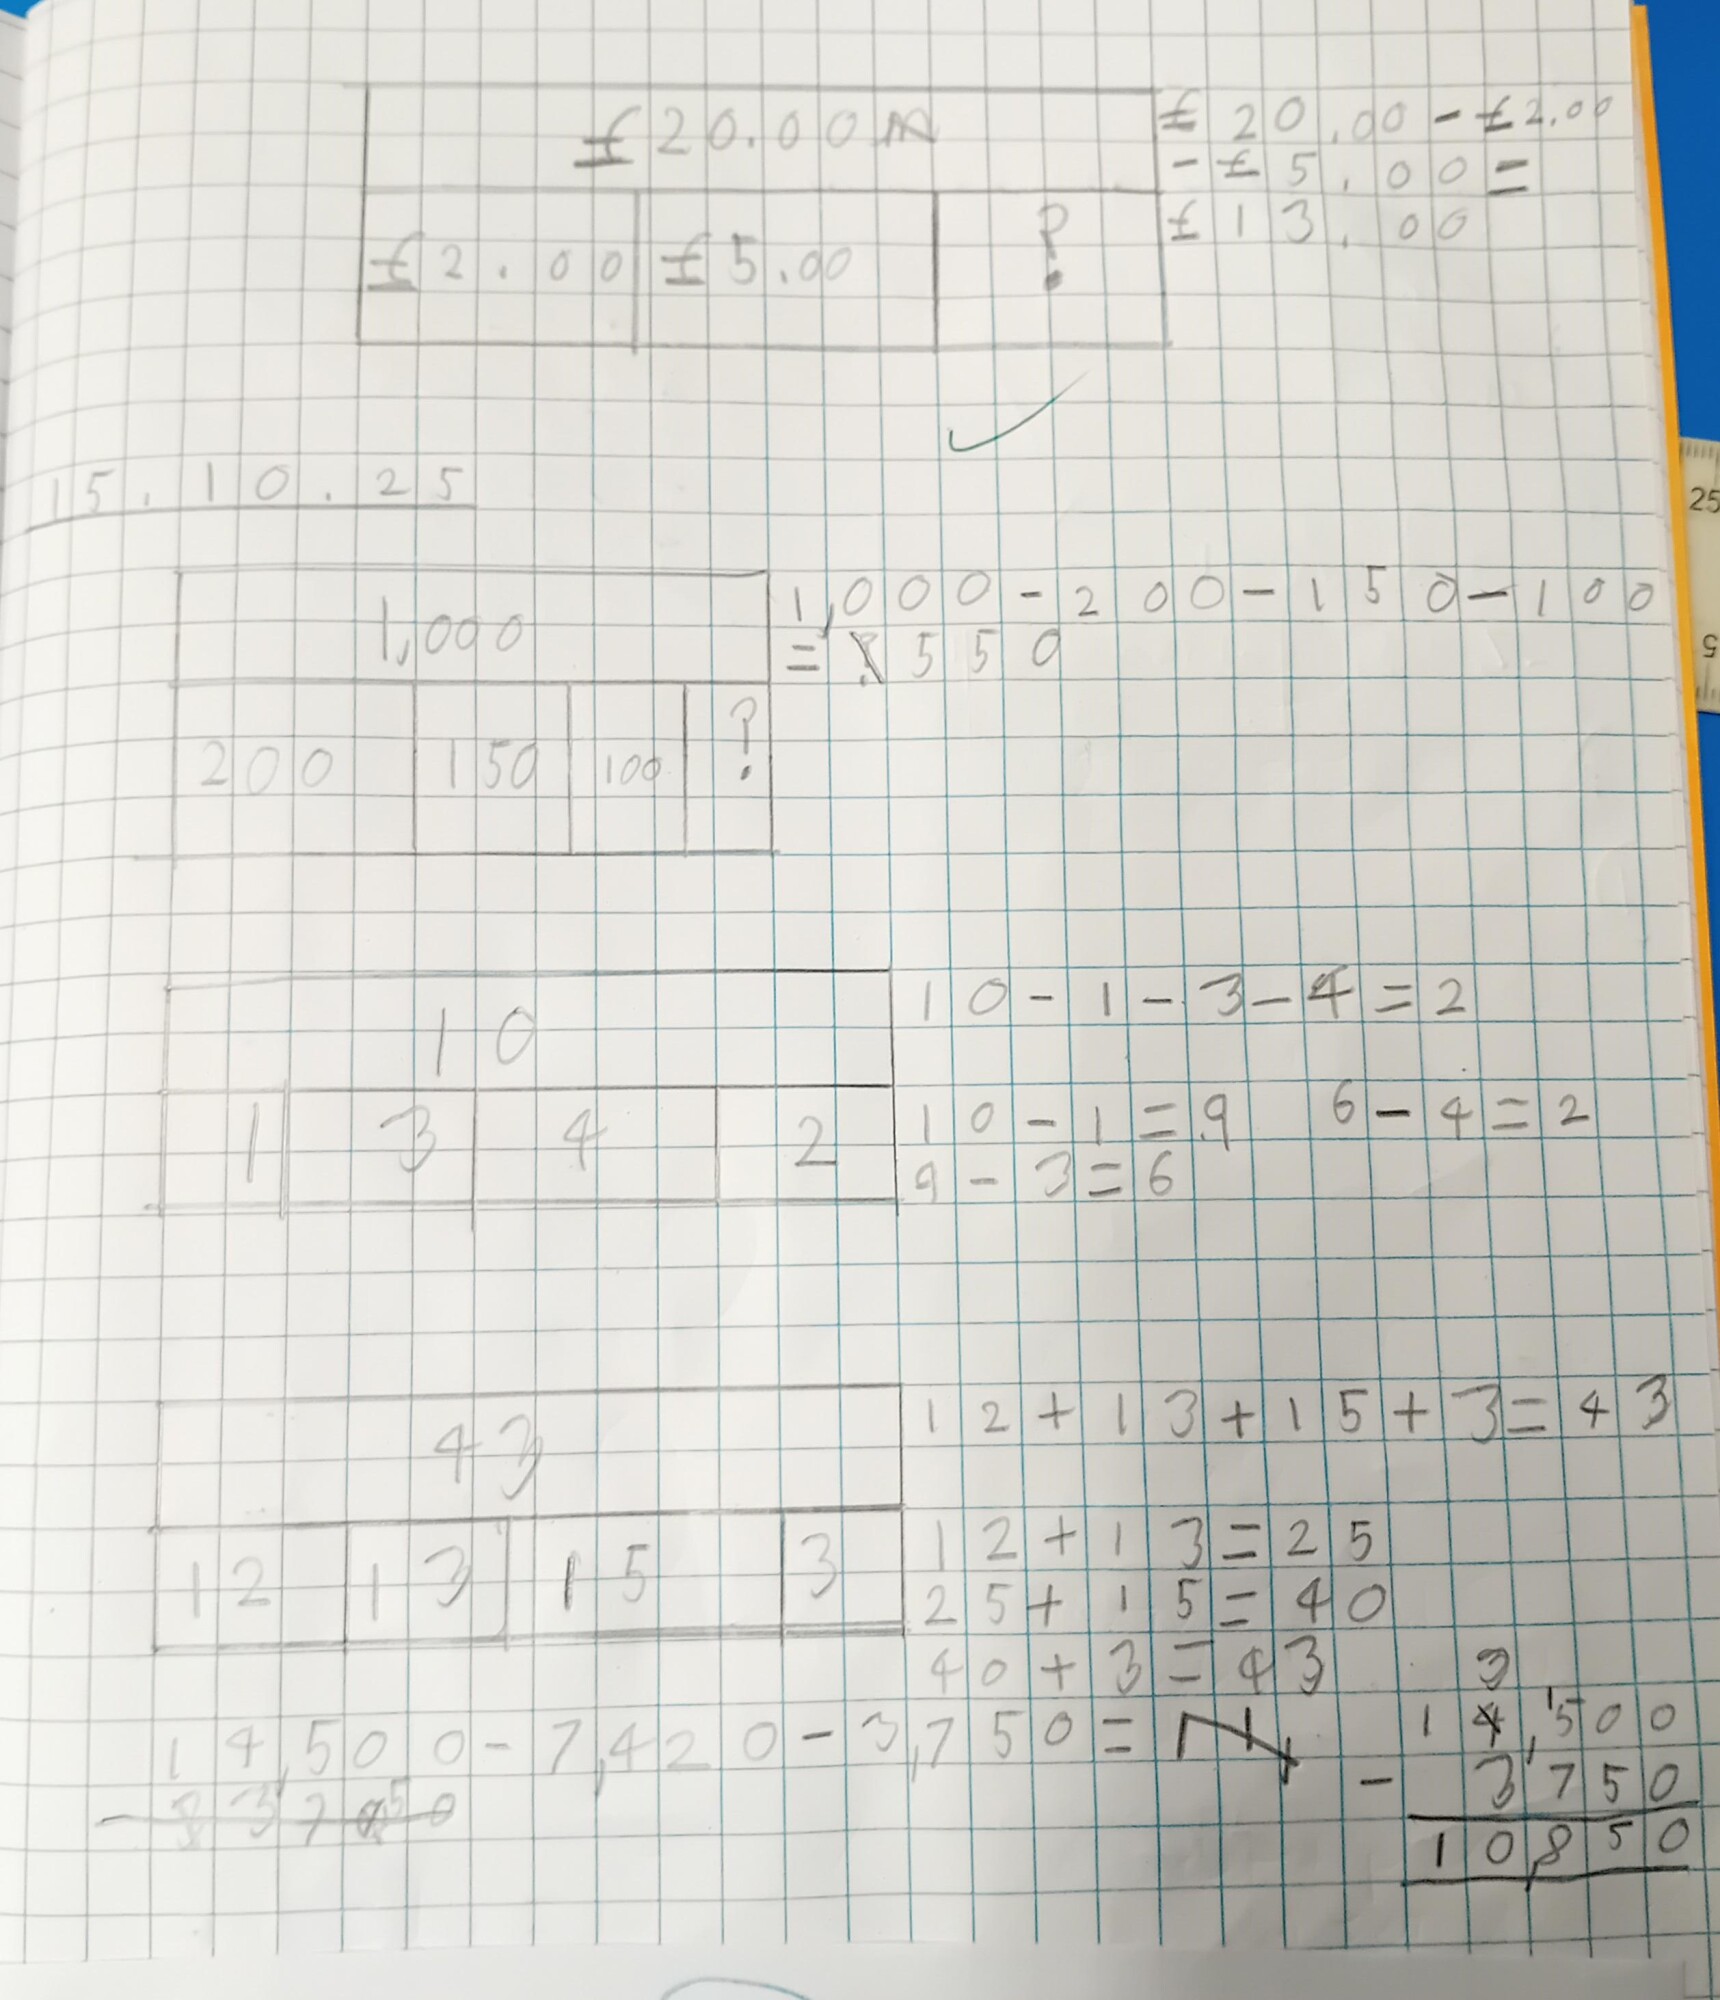 £20.00m
£20.00-£2.00
-£5.00=
£13.00
£2.00 £5.00 ?
15.10.25
1,000
1,000-200-150-100
=550
200 150 100 ?
10
10-1-3-4=2
1 3 4 2
10-1=9 6-4=2
9-3=6
43
12+13+15+3=43
12 13 15 3
12+13=25
25+15=40
40+3=43
14,500-7,420-3,750=
3
14,1500
- 3750
10,850
25
5